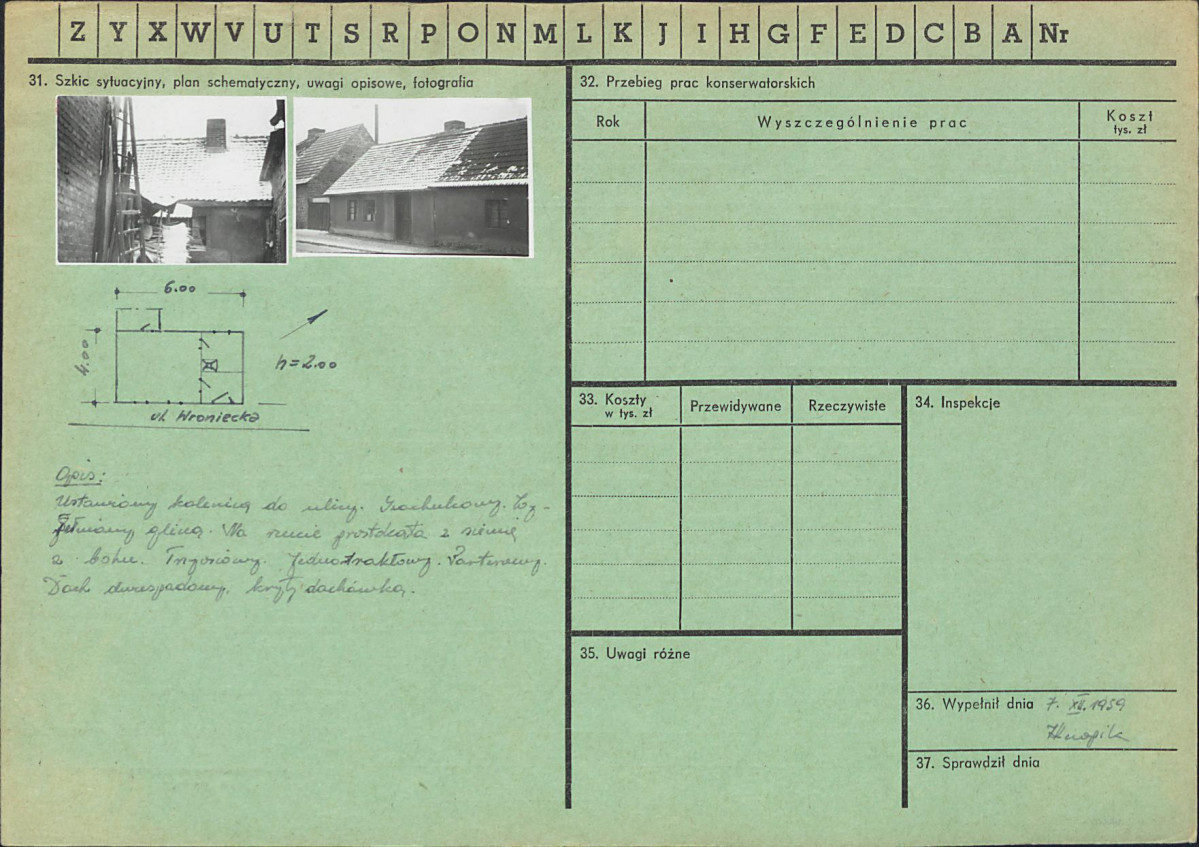 Z Y X W V U T S R P O N M L K J I H G F E D C B A Nr
31. Szkic sytuacyjny, plan schematyczny, uwagi opisowe, fotografia
6.00
4.00
h=2.00
ul. Wroniecka
Opis:
Ustawiony kalenicą do ulicy.
gliną. Na rzucie prostokąta z sienią
z boku. Trzyosiowy. Jednotraktowy. Parterowy.
Dach dwuspadowy, kryty dachówką.
32. Przebieg prac konserwatorskich
Rok
Wyszczególnienie prac
Koszt
tys. zł
33. Koszty
w tys. zł
Przewidywane
Rzeczywiste
34. Inspekcje
35. Uwagi różne
36. Wypełnił dnia 7. XII. 1959
37. Sprawdził dnia